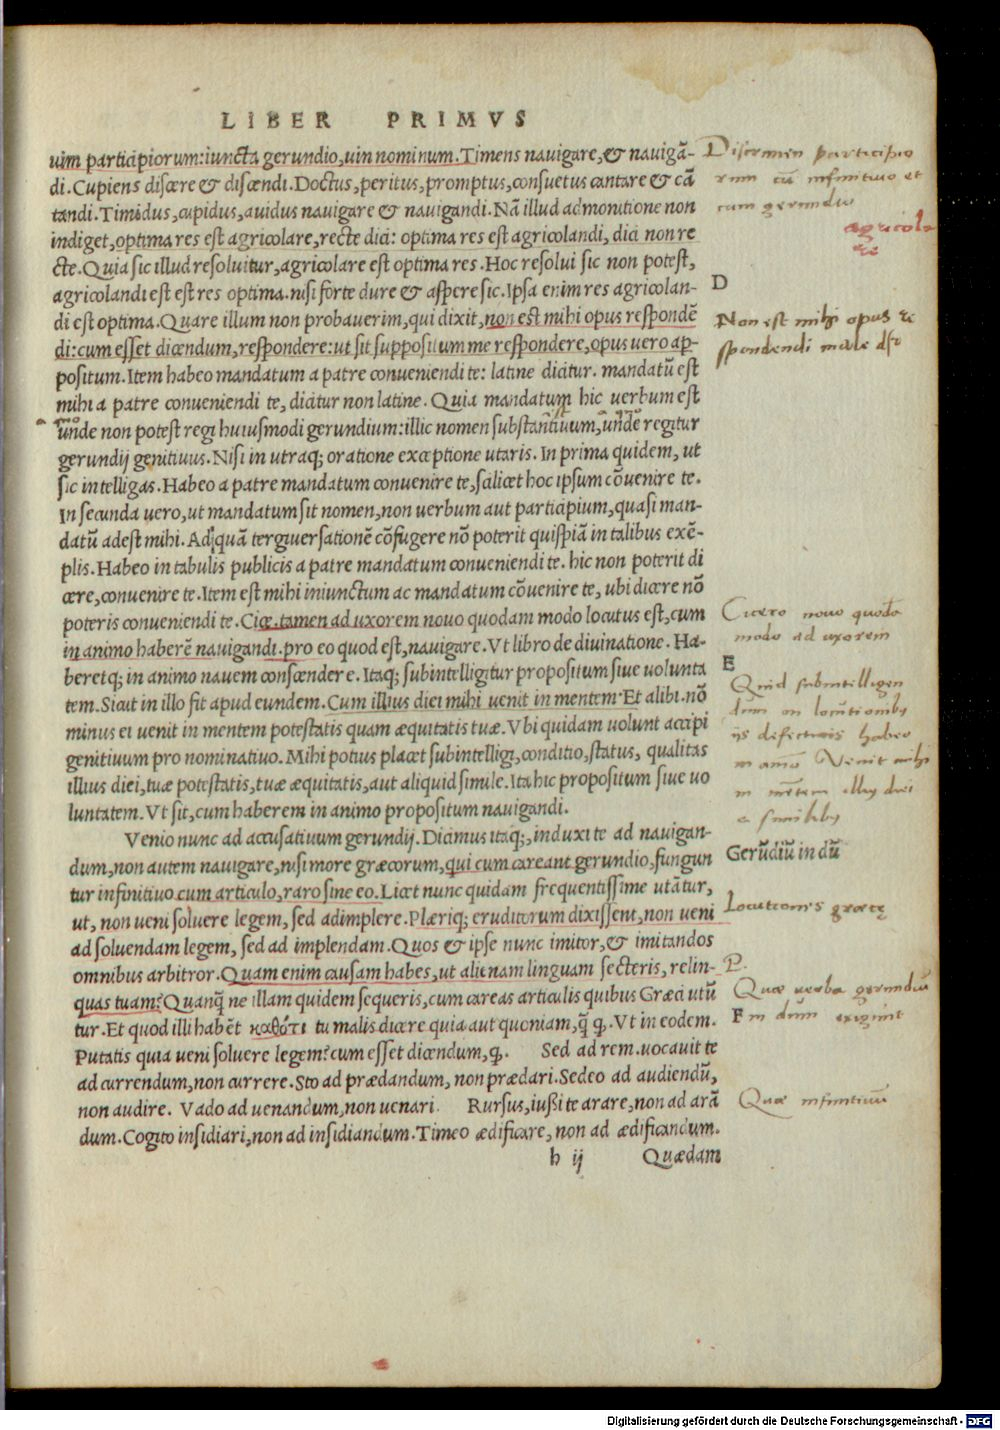 LIBER PRIMVS
uim participiorum: iuncta gerundio, uin nominum. Timens nauigare, & nauigā-
di. Cupiens discere & discendi. Doctus, peritus, promptus, consuetus cantare & cā
tandi. Timidus, cupidus, auidus nauigare & nauigandi. Nā illud admonitione non
indiget, optima res est agricolare, recte dici: optima res est agricolandi, dici non re
cte. Quia sic illud resoluitur, agricolare est optima res. Hoc resolui sic non potest,
agricolandi est est res optima. nisi forte dure & aspere sic. Ipsa enim res agricolan-
di est optima. Quare illum non probauerim, qui dixit, non est mihi opus respondē
di: cum esset dicendum, respondere: ut sit suppositum me respondere, opus uero ap-
positum. Item habeo mandatum a patre conueniendi te: latine dicitur. mandatū est
mihi a patre conueniendi te, dicitur non latine. Quia mandatum hic uerbum est
unde non potest regi huiusmodi gerundium: illic nomen substantiuum, unde regitur
gerundij genitiuus. Nisi in utraq; oratione exceptione utaris. In prima quidem, ut
sic intelligas. Habeo a patre mandatum conuenire te, scilicet hoc ipsum cōuenire te.
In secunda uero, ut mandatum sit nomen, non uerbum aut participium, quasi man-
datū adest mihi. Ad quā tergiuersationē cōfugere nō poterit quispiā in talibus exē-
plis. Habeo in tabulis publicis a patre mandatum conueniendi te. hic non poterit di
cere, conuenire te. Item est mihi iniunctum ac mandatum cōuenire te, ubi dicere nō
poteris conueniendi te. Cice. tamen ad uxorem nouo quodam modo locutus est, cum
in animo haberē nauigandi. pro eo quod est, nauigare. Vt libro de diuinatione. Ha-
beret q; in animo nauem conscendere. Itaq; subintelligitur propositum siue uolunta
tem. Sicut in illo fit apud eundem. Cum illius diei mihi uenit in mentem. Et alibi. nō
minus ei uenit in mentem potestatis quam æquitatis tuæ. Vbi quidam uolunt accipi
genitiuum pro nominatiuo. Mihi potius placet subintelligi, conditio, status, qualitas
illius diei, tuæ potestatis, tuæ æquitatis, aut aliquid simile. Ita hic propositum siue uo
luntatem. Vt sit, cum haberem in animo propositum nauigandi.
Venio nunc ad accusatiuum gerundij. Dicimus itaq;, induxi te ad nauigan-
dum, non autem nauigare, nisi more græcorum, qui cum careant gerundio, fungun
tur infinitiuo cum articulo, raro sine eo. Licet nunc quidam frequentissime utātur,
ut, non ueni soluere legem, sed adimplere. Plæriq; eruditorum dixissent, non ueni
ad soluendam legem, sed ad implendam. Quos & ipse nunc imitor, & imitandos
omnibus arbitror. Quam enim causam habes, ut alienam linguam secteris, relin-
quas tuam? Quanq̄ ne illam quidem sequeris, cum careas articulis quibus Græci utū
tur. Et quod illi habēt καθότι tu malis dicere quia aut quoniam, q̄ ꝙ. Vt in eodem.
Putatis quia ueni soluere legem? cum esset dicendum, ꝙ. Sed ad rem. uocauit te
ad currendum, non currere. Sto ad prædandum, non prædari. Sedeo ad audiendū,
non audire. Vado ad uenandum, non uenari. Rursus, iussi te arare, non ad arā
dum. Cogito insidiari, non ad insidiandum. Timeo ædificare, non ad ædificandum.
h ij Quædam
Discrimen participio
rum cū infinitiuo et
cum gerundio
agricola
re
D
Non est mihi opus re
spondendi male dr̄
Cicero nouo quodā
modo ad uxorem
E
Quid subintelligen
dum in locutionibus
iis defectiuis habeo
in animo Venit mihi
in mētem illius diei
& similibus
Gerūdiū in dū
Locutiones græce
Quæ uerba gerundiū
F in dum exigunt
Quæ infinitiuū